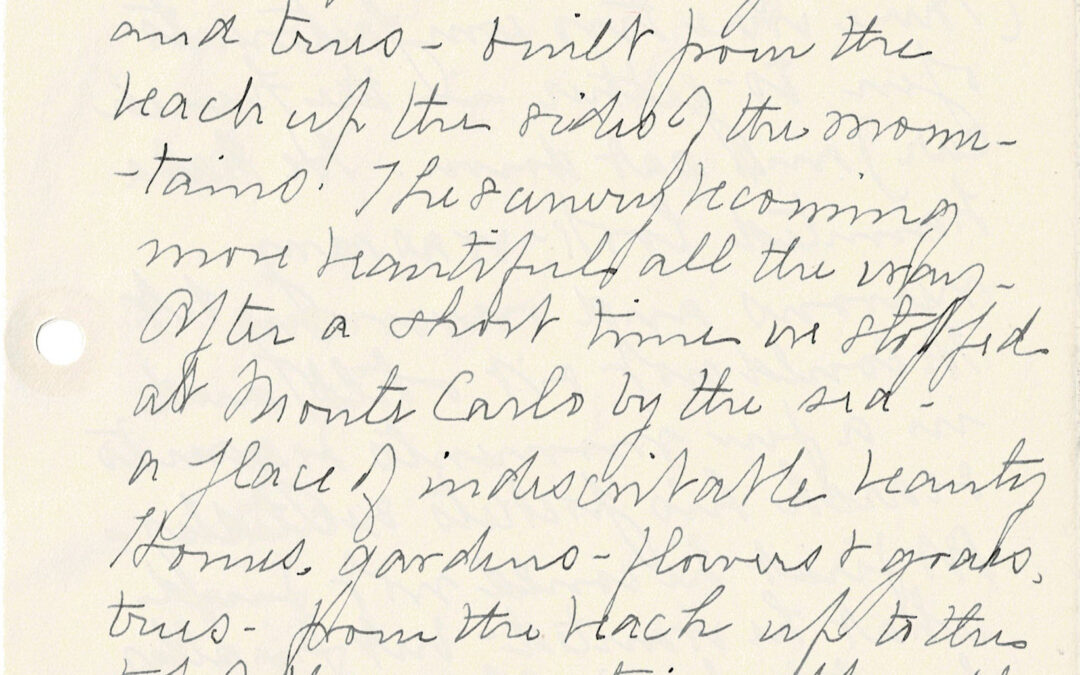 and trees - built from the
beach up the sides of the moun-
-tains. The scenery becoming
more beautiful all the way -
After a short time we stopped
at Monte Carlo by the sea -
a place of indescribable beauty
Homes, gardens - flowers & grass,
trees - from the beach up to the